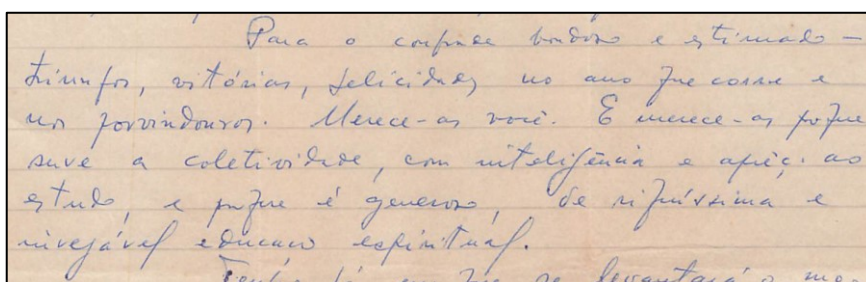 Para o confrade bondoso e estimado –
triunfos, vitórias, felicidades no ano que corre e
nos porvindouros. Merece-as você. E merece-as porque
serve a coletividade, com inteligência e apêgo ao
estudo, e porque é generoso, de riquíssima e
invejável educacao espiritual.
Tenho fé em que se levantará o